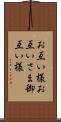 お互い様お
互いさま御
互い様